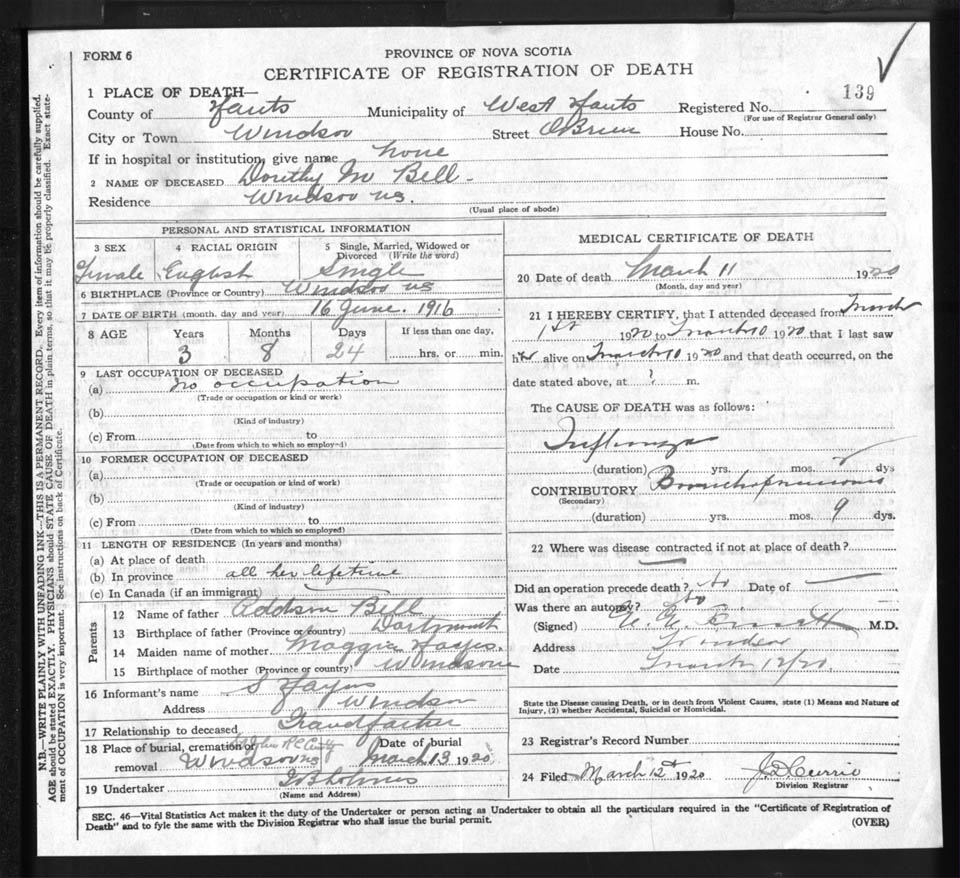 FORM 6
PROVINCE OF NOVA SCOTIA
CERTIFICATE OF REGISTRATION OF DEATH
139
1 PLACE OF DEATH—
County of Hants Municipality of West Hants Registered No.
(For use of Registrar General only)
City or Town Windsor Street OBrien House No.
If in hospital or institution, give name none
2 NAME OF DECEASED Dorithy M Bell
Residence Windsor NS.
(Usual place of abode)
PERSONAL AND STATISTICAL INFORMATION
3 SEX 4 RACIAL ORIGIN 5 Single, Married, Widowed or Divorced (Write the word)
Female English Single
6 BIRTHPLACE (Province or Country) Windsor NS
7 DATE OF BIRTH (month, day and year) 16 June. 1916
8 AGE Years Months Days If less than one day,
3 8 24 hrs. or min.
9 LAST OCCUPATION OF DECEASED
(a) no occupation
(Trade or occupation or kind or work)
(b)
(Kind of industry)
(c) From to
(Date from which to which so employed)
10 FORMER OCCUPATION OF DECEASED
(a)
(Trade or occupation or kind of work)
(b)
(Kind of industry)
(c) From to
(Date from which to which so employed)
11 LENGTH OF RESIDENCE (In years and months)
(a) At place of death
(b) In province all her lifetime
(c) In Canada (if an immigrant)
Parents
12 Name of father Addison Bell
13 Birthplace of father (Province or country) Dartmouth
14 Maiden name of mother Maggie Hayes.
15 Birthplace of mother (Province or country) Windsor
16 Informant's name S Hayes
Address Windsor
17 Relationship to deceased Grandfather
18 Place of burial, cremation or St John RC Date of burial
removal Windsor NS March 13 1920
19 Undertaker Holmes
(Name and Address)
MEDICAL CERTIFICATE OF DEATH
20 Date of death March 11 1920
(Month, day and year)
21 I HEREBY CERTIFY, that I attended deceased from March
1st 1920 to March 10 1920 that I last saw
her alive on March 10 1920 and that death occurred, on the
date stated above, at ? m.
The CAUSE OF DEATH was as follows:
Influenza
(duration) yrs. mos. dys
CONTRIBUTORY Bronchopneumonia
(Secondary)
(duration) yrs. mos. 9 dys.
22 Where was disease contracted if not at place of death?
Did an operation precede death? No Date of
Was there an autopsy? No
(Signed) M.D.
Address Windsor
Date March 12/20
State the Disease causing Death, or in death from Violent Causes, state (1) Means and Nature of
Injury, (2) whether Accidental, Suicidal or Homicidal.
23 Registrar's Record Number
24 Filed March 12th 1920 J.D. Currie
Division Registrar
SEC. 46—Vital Statistics Act makes it the duty of the Undertaker or person acting as Undertaker to obtain all the particulars required in the "Certificate of Registration of
Death" and to fyle the same with the Division Registrar who shall issue the burial permit.
(OVER)
N.B.—WRITE PLAINLY WITH UNFADING INK—THIS IS A PERMANENT RECORD. Every item of information should be carefully supplied.
AGE should be stated EXACTLY. PHYSICIANS should STATE CAUSE OF DEATH in plain terms, so that it may be properly classified. Exact state-
ment of OCCUPATION is very important. See instructions on back of Certificate.